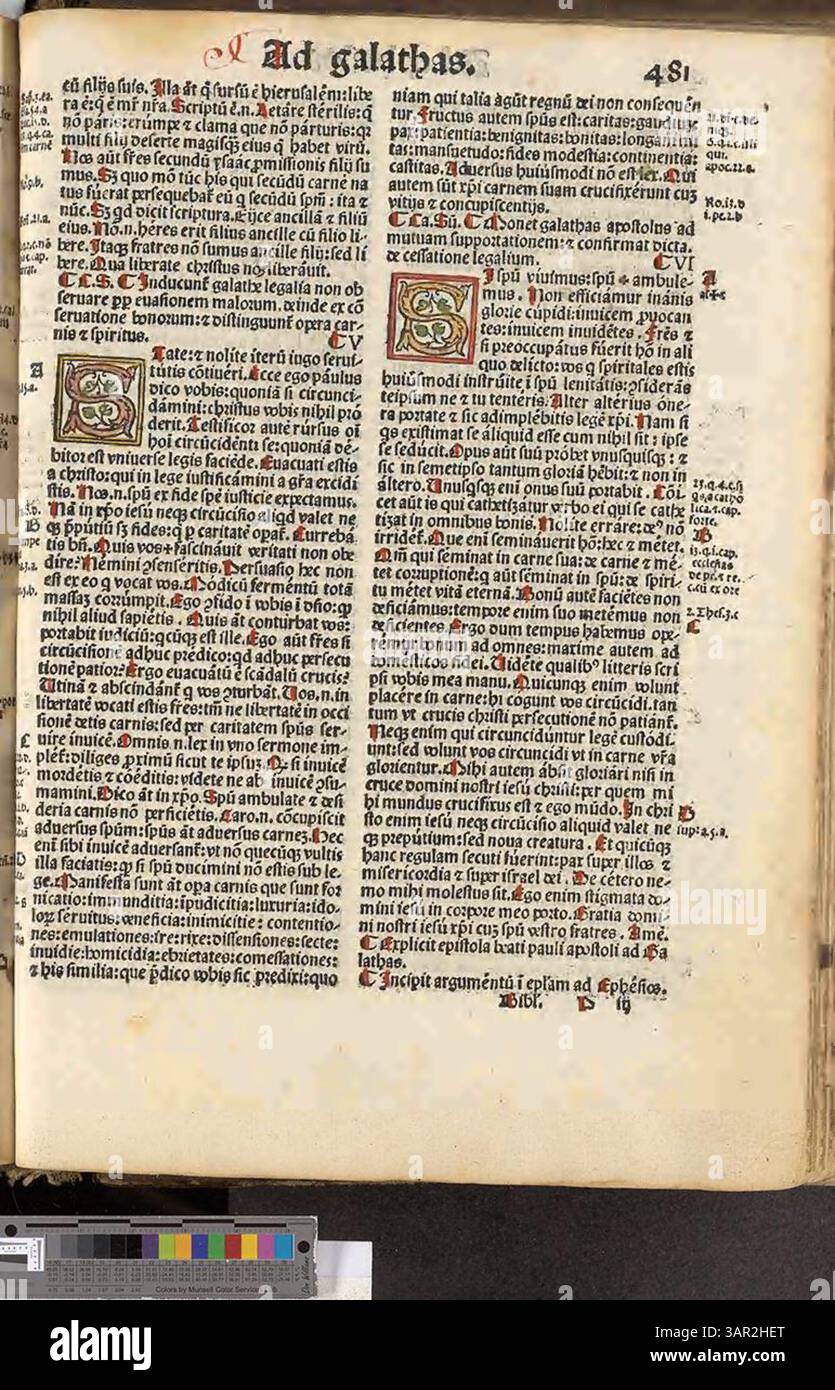 Ad galathas.
481
cū filijs suis. Illa āt q̄ sursū ē hierusalēm: libe
ra ē: q̄ ē mr̄ nr̄a. Scriptū ē.n. Letare sterilis: q̄
nō paris: erūmpe ⁊ clama que nō parturis: qꝛ
multi filij deserte magisqꝫ eius q̄ habet virū.
Nos aūt fres secundū ysaac ꝓmissionis filij su
mus. Sꝫ quo mō tūc his qui secūdū carnē na
tus fuerat persequebat̄ eū q̄ secūdū spm̄: ita ⁊
nūc. Sꝫ qd dicit scriptura. Eijce ancillā ⁊ filiū
eius. Nō.n. hēres erit filius ancille cū filio li-
bere. Itaqꝫ fratres nō sumus ancille filij: sed li
bere. Qua liberate christus nos liberauit.
C Ca. S. C Inducunt̄ galathe legalia non ob
seruare ꝓpꝛ euasionem malorum. deinde ex cō
seruatione bonorum: ⁊ distinguunt̄ opera car-
nis ⁊ spiritus. CV
A
State: ⁊ nolite iterū iugo serui-
tutis cōtineri. Ecce ego paulus
dico vobis: quoniā si circunci-
damini: christus vobis nihil pro
derit. Testificor autē rursus oī
hoī circūcidēnti se: quoniā dē-
bitor est vniuerse legis faciēde. Euacuati estis
a christo: qui in lege iustificāmini a gr̄a excidi
stis. Nos.n. spū ex fide spē iusticie expectamus.
Nā in xp̄o iesu neqꝫ circūcisio aliqd valet ne
qꝫ p̄putiū sꝫ fides: q̄ ꝑ caritatē opat̄. Currebā
tis bn̄. Quis vos fascināuit veritati non obe
dire? Nēmini ꝯsenséritis. Persuasio hec non
est ex eo q̄ vocat vos. Mōdicū fermētū totā
massaꝫ corrūmpit. Ego ꝯfido ī vobis ī dn̄o: ꝙ
nihil aliud sapiétis. Quis āt conturbat vos:
portabit iudiciū: qcūqꝫ est ille. Ego aūt fr̄es si
circūcisionē adhuc predico: qd adhuc persecu
tionē patior? Ergo euacuātū ē scādalū crucis?
Utinā ⁊ abscindānt̄ q̄ vos ꝯturbāt. Uos.n. in
libertatē vocati estis fres: tm̄ ne libertatē in occa
sionē detis carnis: sed per caritatem spūs ser-
C uire inuicē. Omnis.n. lex in vno sermone im-
plet̄: diliges ꝓximū sicut te ipsuꝫ. Qꝫ si inuicē
mordétis ⁊ cōéditis: videte ne ab inuicē ꝯsu-
mamini. Dico āt in xp̄o. Spū ambulate ⁊ desi
deria carnis nō perficiétis. Caro.n. cōcupiscit
aduersus spūm: spūs āt aduersus carneꝫ. Hec
eni sibi inuicē aduersant̄: vt nō quecūqꝫ vultis
illa faciatis: ꝙ si spū ducimini nō estis sub le-
ge. Manifesta sunt āt opa carnis que sunt for
nicatio: immunditia: īpudicitia: luxuria: ido-
loꝝ seruitus: veneficia: inimicitie: contentio-
nes: emulationes: ire: rixe: dissensiones: secte:
inuidie: homicidia: ebrietates: comessationes:
⁊ his similia: que p̄dico vobis sic p̄edixi: quo
niam qui talia agūt regnū dei non consequēn
tur. Fructus autem spūs est: caritas: gaudiuꝫ
pax: patientia: benignitas: bonitas: longanimi
tas: mansuetudo: fides modestia: continentia:
castitas. Aduersus huiūsmodi nō est lex. Qui
autem sūt xp̄i carnem suam crucifixérunt cuꝫ
vitijs ⁊ concupiscentijs.
C Ca. Sū. C Monet galathas apostolus ad
mutuam supportationem: ⁊ confirmat dicta.
de cessatione legalium. CVI
A
Si spū viuimus: spū ⁊ ambule-
mus. Non efficiámur inánis
glorie cupidi: inuicem ꝓuocan
tes: inuicem inuidétes. Fr̄es ⁊
si preoccupátus fúerit hō in ali
quo delicto: vos q̄ spiritales estis
huiūsmodi instruite ī spū lenitátis: ꝯsiderās
teipsum ne ⁊ tu tenteris. Alter altérius óne-
ra portate ⁊ sic adimplébitis legē xp̄i. Nam si
qs existimat se áliquid esse cum nihil sit: ipse
se sedúcit. Opus aūt suū probet vnusquisqꝫ: ⁊
sic in semetipso tantum gloriā hēbit: ⁊ non in
áltero. Unusqsqꝫ eni onus suū portabit. Cōi-
cet aūt is qui cathetizatur verbo ei qui se cathe
tizat in omnibus bonis. Nolite erráre: deꝰ nō
irridet̄. Que eni semināuerit hō: hec ⁊ metet.
Qm̄ qui seminat in carne sua: de carne ⁊ mé-
tet corruptionē: q̄ aūt séminat in spū: de spiri-
tu métet vitā eternā. Bonū autē faciétes non
deficiámus: tempore enim suo metémus non
deficientes. Ergo dum tempus habemus ope-
rémur bonum ad omnes: maxime autem ad
domésticos fidei. Uidéte qualibꝰ litteris scri
psi vobis mea manu. Quicunqꝫ enim volunt
placére in carne: hi cogunt vos circúcidi. tan
tum vt crucis christi persecutionē nō patiant̄.
Neqꝫ enim qui circuncidúntur legē custódi-
unt: sed volunt vos circuncidi vt in carne vr̄a
glorientur. Mihi autem ábsit gloriári nisi in
cruce domini nostri iesú christi: per quem mi
hi mundus crucifixus est ⁊ ego múdo. In chri
sto enim iesú neqꝫ circúcisio aliquid valet ne
qꝫ prepútium: sed noua creatura. Et quicúqꝫ
hanc regulam secuti fúerint: pax super illos ⁊
misericórdia ⁊ super israel dei. De cétero ne-
mo mihi molestus sit. Ego enim stigmata do-
mini iesú in corpore meo porto. Gratia domi-
ni nostri iesú xp̄i cuꝫ spū vestro fratres. Amē.
C Explicit epistola beati pauli apostoli ad Ga
lathas.
C Incipit arguméntū ī ep̄lam ad Ephésios.
Bibl. P iij
alamy
Image ID: 3AR2HET
www.alamy.com